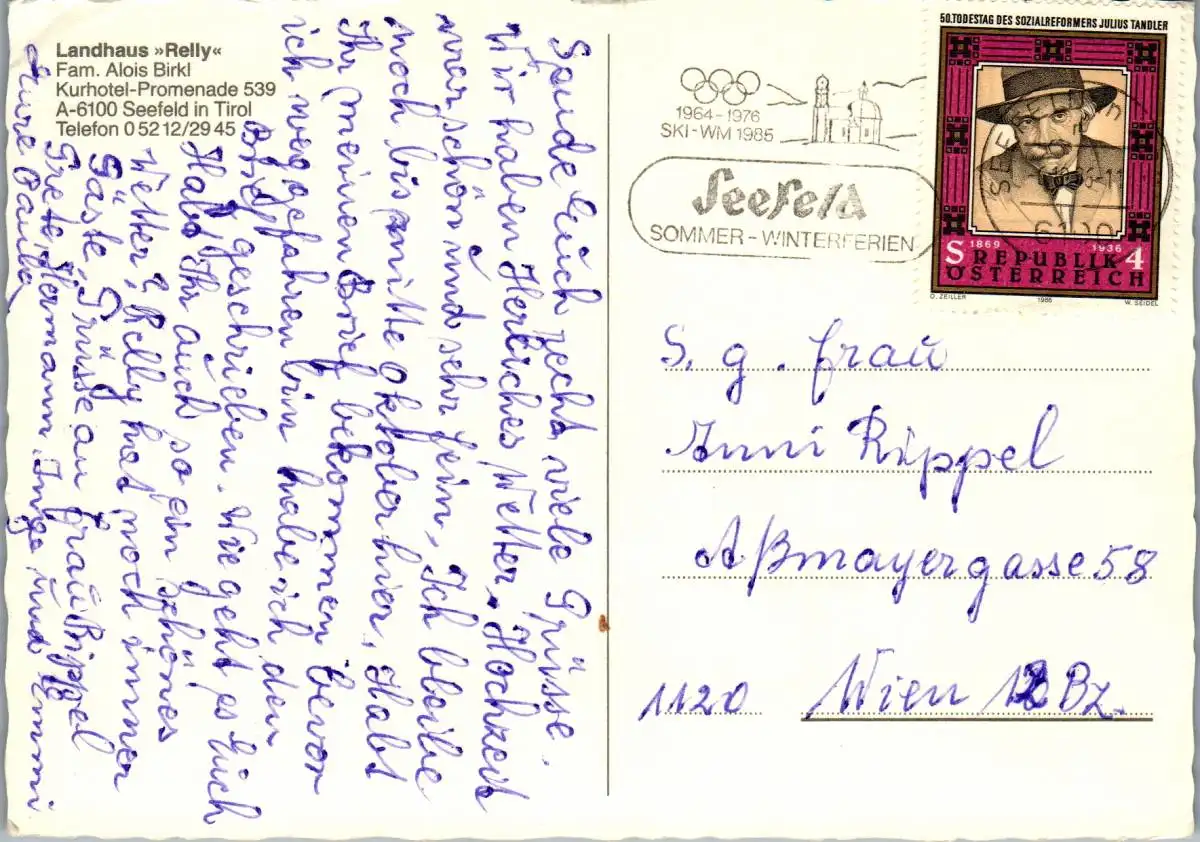 Landhaus »Relly«
Fam. Alois Birkl
Kurhotel-Promenade 539
A-6100 Seefeld in Tirol
Telefon 0 52 12/29 45
Sende Euch recht viele Grüsse.
Wir haben Herliches Wetter. Hochzeit
war schön und sehr fein, Ich bleibe
noch bis mitte oktober hier, Habt
Ihr meinen Brief bekommen bevor
ich weg gefahren bin habe ich den
Brief geschrieben. Wie geht es Euch
Habt Ihr auch so ein schönes
Wetter? Relly hat noch immer
Gäste, Grüsse an Frau Rippel
Grete, Hermann, Inge und Emmi
Eure Paula
1964-1976
SKI-WM 1985
Seefeld
SOMMER-WINTERFERIEN
6100
50.TODESTAG DES SOZIALREFORMERS JULIUS TANDLER
1869 1936
S REPUBLIK 4
ÖSTERREICH
O. ZEILLER 1986 W. SEIDEL
S. g. Frau
Anni Rippel
Aßmayergasse 58
1120 Wien 12 Bz.